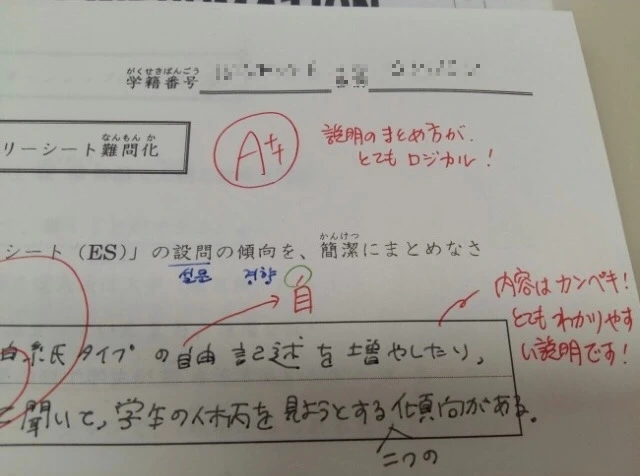 がくせきばんごう
学籍番号
なんもんか
リーシート難問化
A++
説明のまとめ方が、
とてもロジカル！
かんけつ
シート（ES）」の設問の傾向を、簡潔にまとめなさ
설문 경향
自
内容はカンペキ！
とてもわかりやす
い説明です！
白紙タイプの自由記述を増やしたり、
聞いて、学生の人柄を見ようとする傾向がある。
二つの